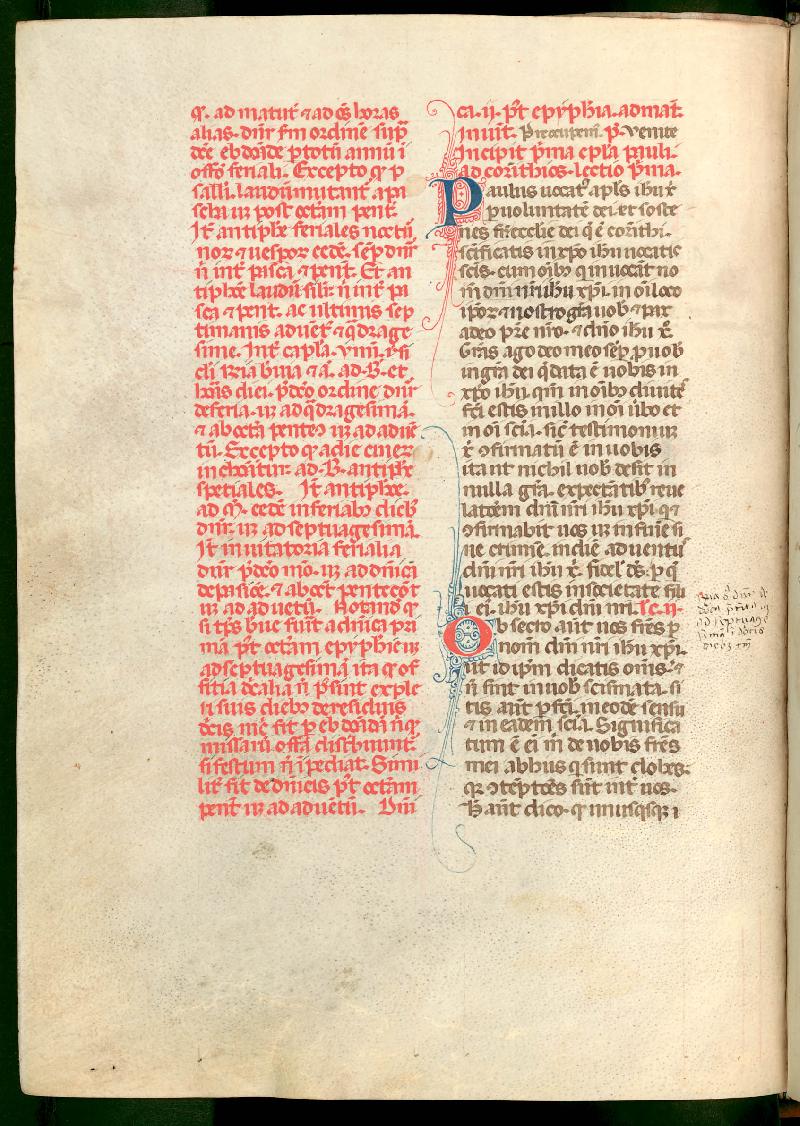 q̃. ad matut̃ ⁊ ad oẽs horas
alias. dnr̃ s̃m ordinẽ sup̃
dc̃e ebdõde ꝑ totũ annũ ĩ
offõ feriali. Excepto ꝙ p̃
salãi. laudiũ mutant̃ a pa
scha usꝫ post octam̃ pent̃.
It̃ antiph̃e feriales noctũ
noꝝ ⁊ uespoꝝ eedẽ. sẽp dnr̃
ñ int̃ pascã ⁊ pent̃. Et an
tiph̃e laudiũ silr̃ ñ int̃ pa
scã ⁊ pent̃. ac ultimis sep
timanis aduẽt̃ ⁊ q̃drage
sime. Int̃ capl̃a. ym̃i. ũsi
cli
ad. B. et
horis diei. p̃dc̃o ordine dnr̃
de feria. usꝫ ad q̃dragesimã.
⁊ ab oct̃a penteꝯ usꝫ ad aduẽ
tũ. Excepto ꝙ a die cineꝝ
inchõant̃. ad. B. antiph̃e
spetiales. It̃ antiph̃e.
ad M̃. eedẽ in feriabꝫ dieb̃
dnr̃. usꝫ ad septuagesimã.
It̃ inuitatoria ferialia
dnr̃ p̃dc̃o mõ. usꝫ ad dñicã
de passiõe. ⁊ ab oct̃ pentecost̃
usꝫ ad aduẽtũ. Notand̃ ꝙ
si tp̃s breue fuit̃ a dñica pri
ma p̃t octam̃ epyphĩe usꝫ
ad septuagesimã ita ꝙ of
fitia dñcalia ñ p̃sint exple
ri suis diebꝫ de residuis
dñcis
missarũ offã distbũunt̃.
si festum ñ ĩpediat. Simi
lit̃ fit de dñicis p̃t octam̃
pent̃ usꝫ ad aduẽtũ. Dñi
ca. ii. p̃t epyphĩa. ad mat̃.
Inuit̃. Preocupem̃. p̃. Venite
Incipit p̃ma ep̃la pauli.
ad corint̃hios. lectio p̃ma.
Paulus uocat̃ apl̃s ih̃u x̃
ꝑ uoluntatẽ dei. et soste
nes fr̃ ecc̃lie dei q̃ ẽ corit̃hi.
sc̃ificatis in xp̃o ih̃u uocatis
sc̃is. cum oĩbꝫ q̃ inuocãt no
m̃ dñi nr̃i ih̃u xp̃i. in oĩ loco
ip̃oꝝ ⁊ nostro. gr̃a uob̃ ⁊ pax
a deo pr̃e nr̃o. ⁊ dño ih̃u x̃.
Gr̃as ago deo meo sẽp p̃ uob̃
in gr̃a dei q̃ data ẽ uobis in
xp̃o ih̃u. qm̃ in oĩbꝫ diuite
fc̃i estis in illo in oĩ ũbo et
in oĩ scĩa. sic̃ testimonium
x̃ ꝯfirmatũ ẽ in uobis
ita ut nichil uob̃ desit in
nulla gr̃a. expectãtibꝫ reue
latõem dñi nr̃i ih̃u xp̃i. q̃ ⁊
ꝯfirmabit uos usꝫ in finẽ si
ne crimĩe. in diẽ aduentũ
dñi nr̃i ih̃u x̃. fidel̃ d̃s. ꝑ q̃
uocati estis in societatẽ filii
ei. ih̃u xp̃i dñi nr̃i. lc̃. ii.
Obsecro aut̃ uos fr̃es ꝑ
nom̃ dñi nr̃i ih̃u xp̃i.
ut id ip̃m dicatis om̃s. ⁊
ñ sint in uob̃ scismata. si
tis aut̃ ꝑfc̃i. in eodẽ sensu
⁊ in eadem scĩa. Significa
tum ẽ eĩ m̃ de uobis fr̃es
mei ab hiis q̃ sunt clohes.
qꝛ ꝯtẽptões sũt int̃ uos.
H̃ aut̃ dico. ꝙ unusqsqꝫ ĩ